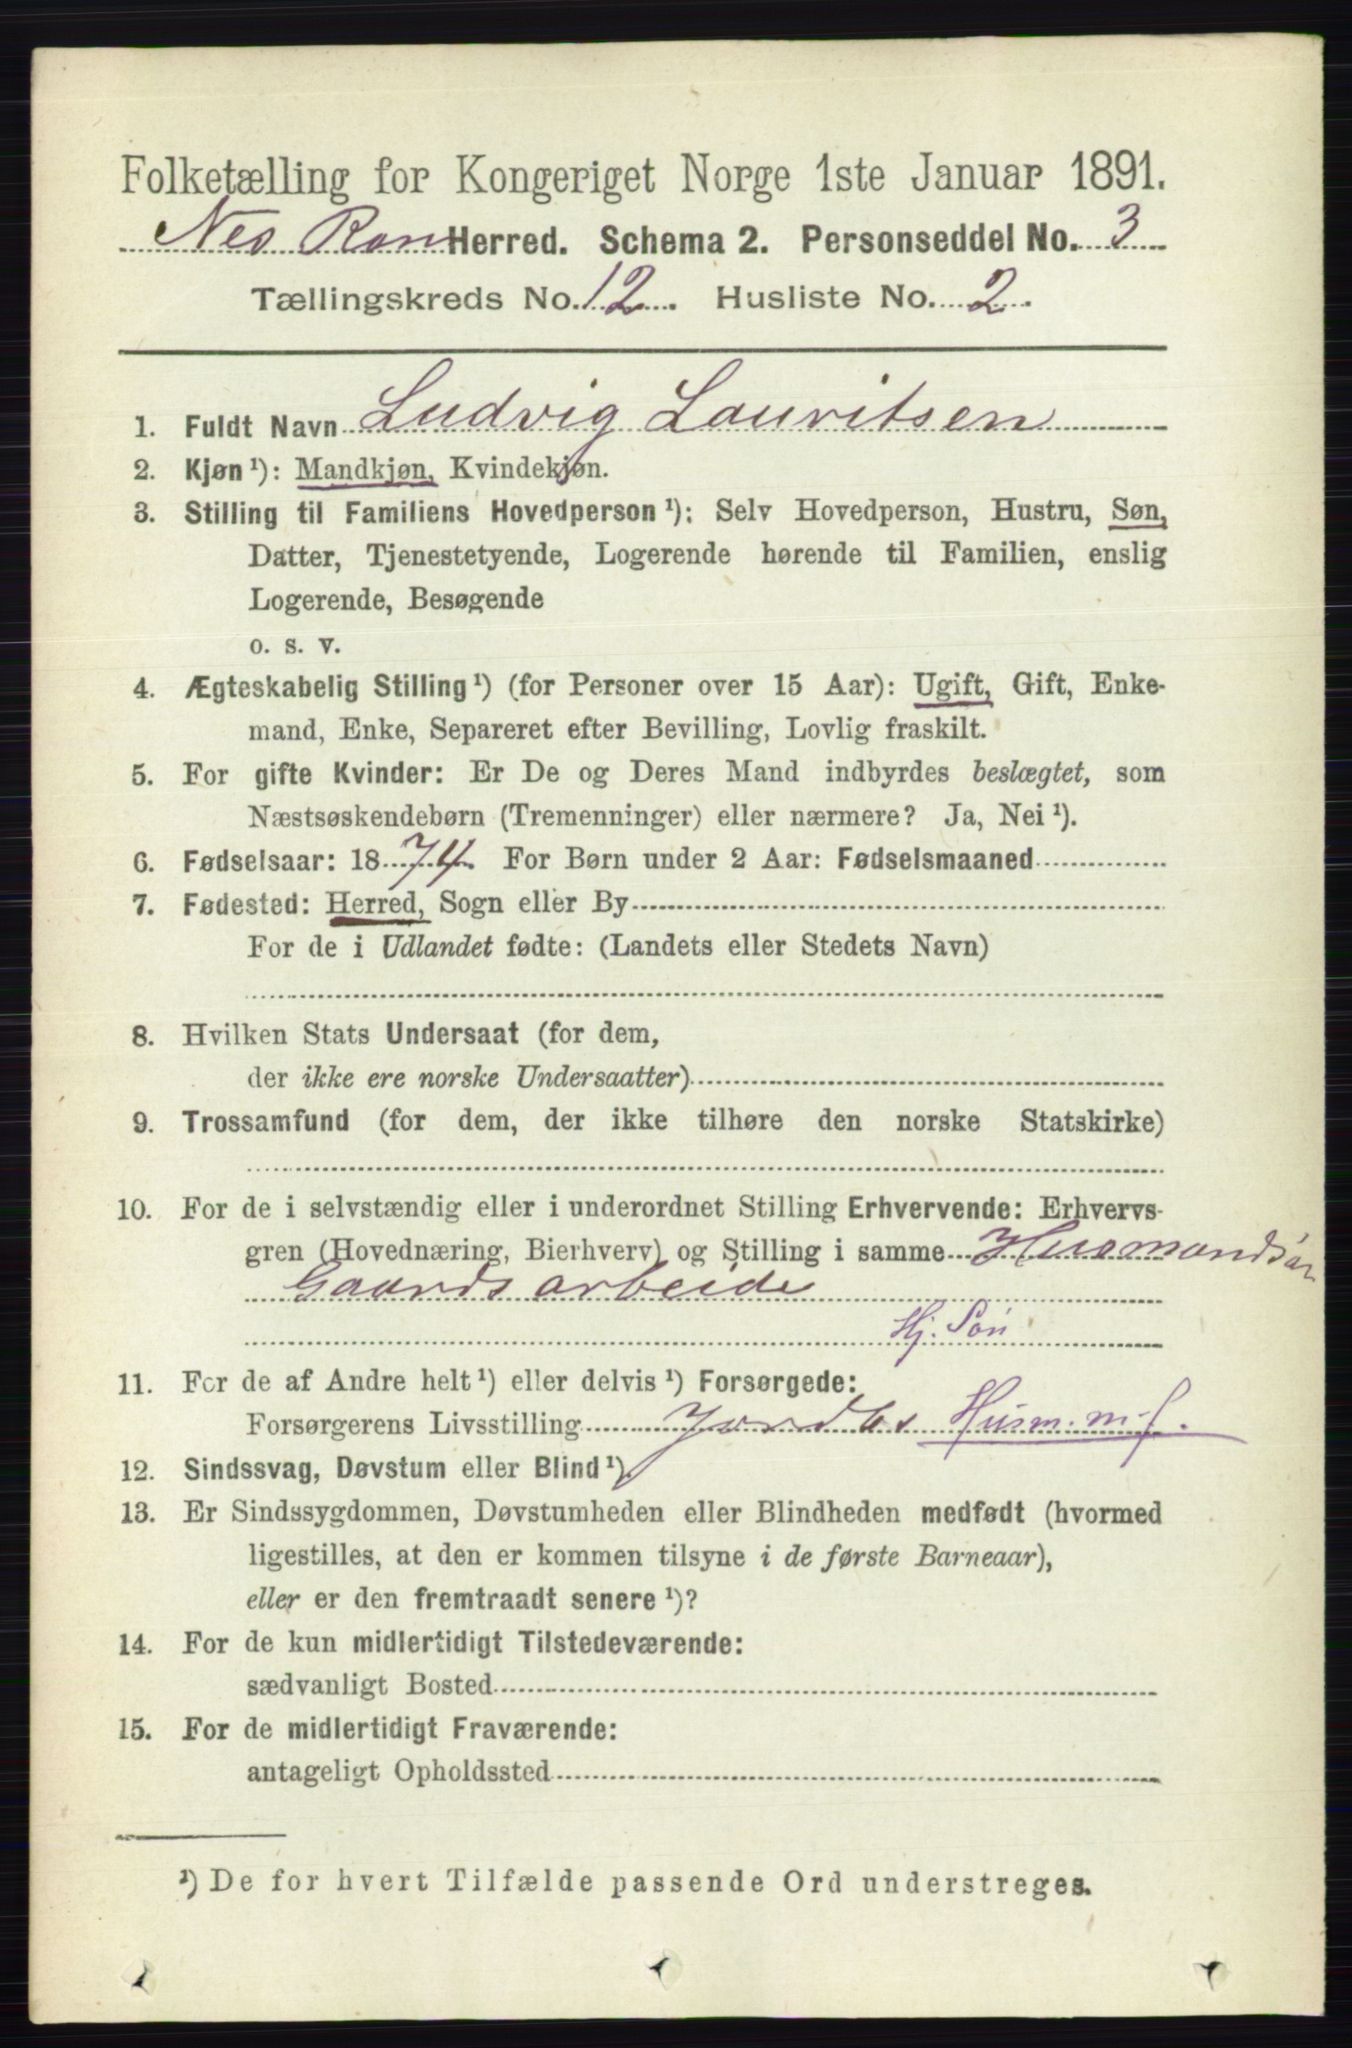 Folketælling for Kongeriget Norge 1ste Januar 1891.
Nes Rom Herred. Schema 2. Personseddel No. 3
Tællingskreds No. 12. Husliste No. 2.
1. Fuldt Navn Ludvig Lauritsen
2. Kjøn¹): Mandkjøn, Kvindekjøn.
3. Stilling til Familiens Hovedperson¹): Selv Hovedperson, Hustru, Søn,
Datter, Tjenestetyende, Logerende hørende til Familien, enslig
Logerende, Besøgende
o. s. v.
4. Ægteskabelig Stilling¹) (for Personer over 15 Aar): Ugift, Gift, Enke-
mand, Enke, Separeret efter Bevilling, Lovlig fraskilt.
5. For gifte Kvinder: Er De og Deres Mand indbyrdes beslægtet, som
Næstsøskendebørn (Tremenninger) eller nærmere? Ja, Nei¹).
6. Fødselsaar: 1874. For Børn under 2 Aar: Fødselsmaaned
7. Fødested: Herred, Sogn eller By
For de i Udlandet fødte: (Landets eller Stedets Navn)
8. Hvilken Stats Undersaat (for dem,
der ikke ere norske Undersaatter)
9. Trossamfund (for dem, der ikke tilhøre den norske Statskirke)
10. For de i selvstændig eller i underordnet Stilling Erhvervende: Erhvervs-
gren (Hovednæring, Bierhverv) og Stilling i samme Husmandsøn
Gaardsarbeide
Hj. Søn
11. For de af Andre helt¹) eller delvis¹) Forsørgede:
Forsørgerens Livsstilling Jordbr Husm. m. f.
12. Sindssvag, Døvstum eller Blind¹).
13. Er Sindssygdommen, Døvstumheden eller Blindheden medfødt (hvormed
ligestilles, at den er kommen tilsyne i de første Barneaar),
eller er den fremtraadt senere¹)?
14. For de kun midlertidigt Tilstedeværende:
sædvanligt Bosted
15. For de midlertidigt Fraværende:
antageligt Opholdssted
¹) De for hvert Tilfælde passende Ord understreges.